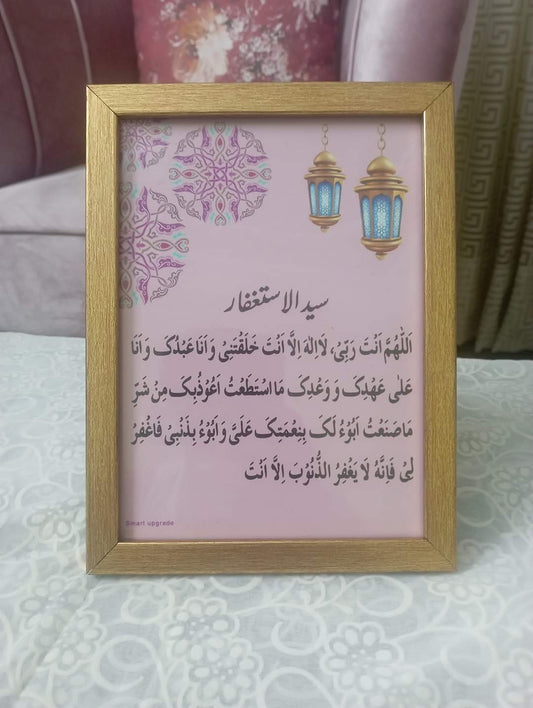 سید الاستغفار
اَللّٰهُمَّ اَنْتَ رَبِّیْ، لَا اِلٰهَ اِلَّا اَنْتَ خَلَقْتَنِیْ وَ اَنَا عَبْدُکَ وَ اَنَا
عَلٰی عَهْدِکَ وَ وَعْدِکَ مَا اسْتَطَعْتُ اَعُوْذُبِکَ مِنْ شَرِّ
مَا صَنَعْتُ اَبُوْءُ لَکَ بِنِعْمَتِکَ عَلَیَّ وَ اَبُوْءُ بِذَنْبِیْ فَاغْفِرْ
لِیْ فَاِنَّهُ لَا یَغْفِرُ الذُّنُوْبَ اِلَّا اَنْتَ
Smart upgrade